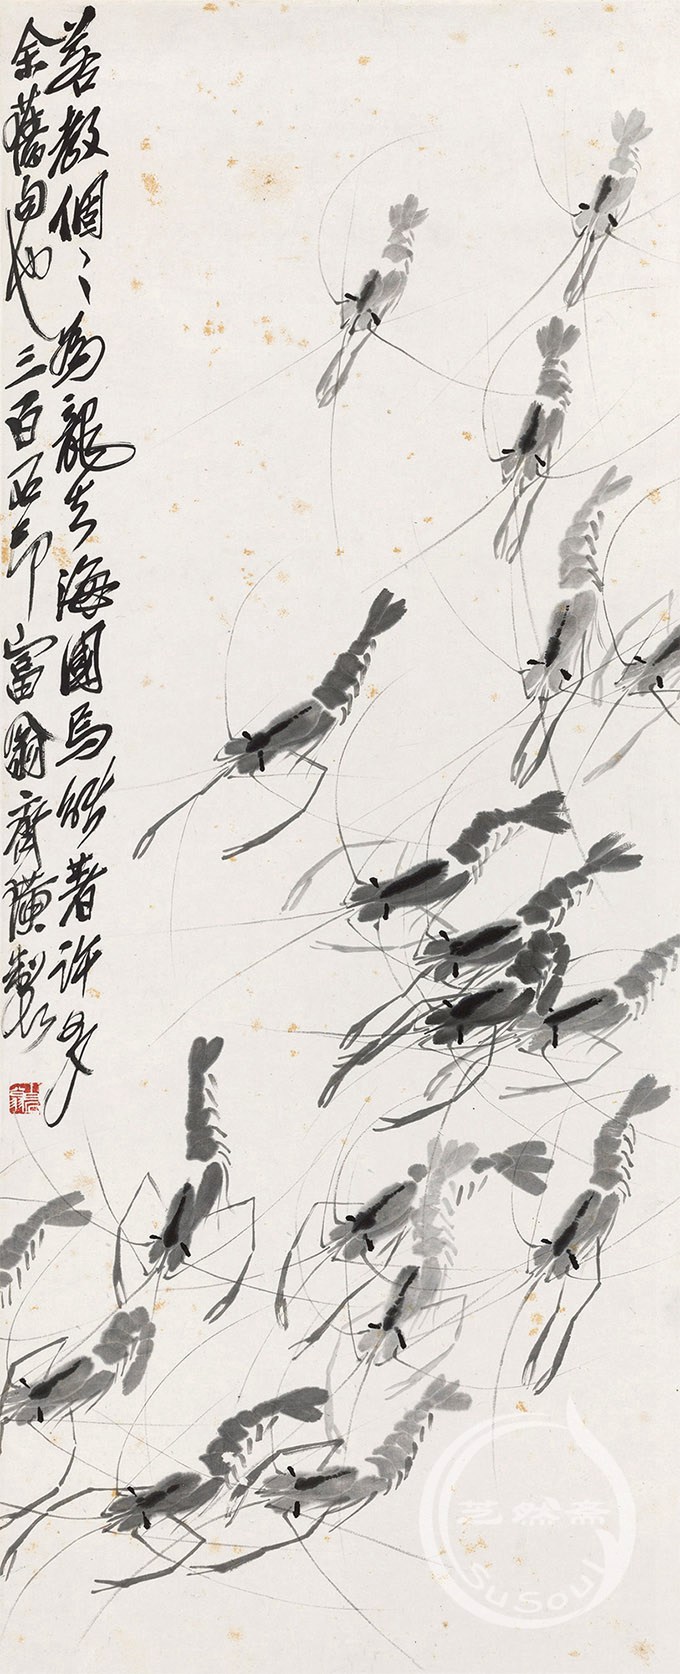 若教個〻為龍去海國焉能著許多
余舊句也三百石印富翁齊璜製
芝然斋
SuSoul